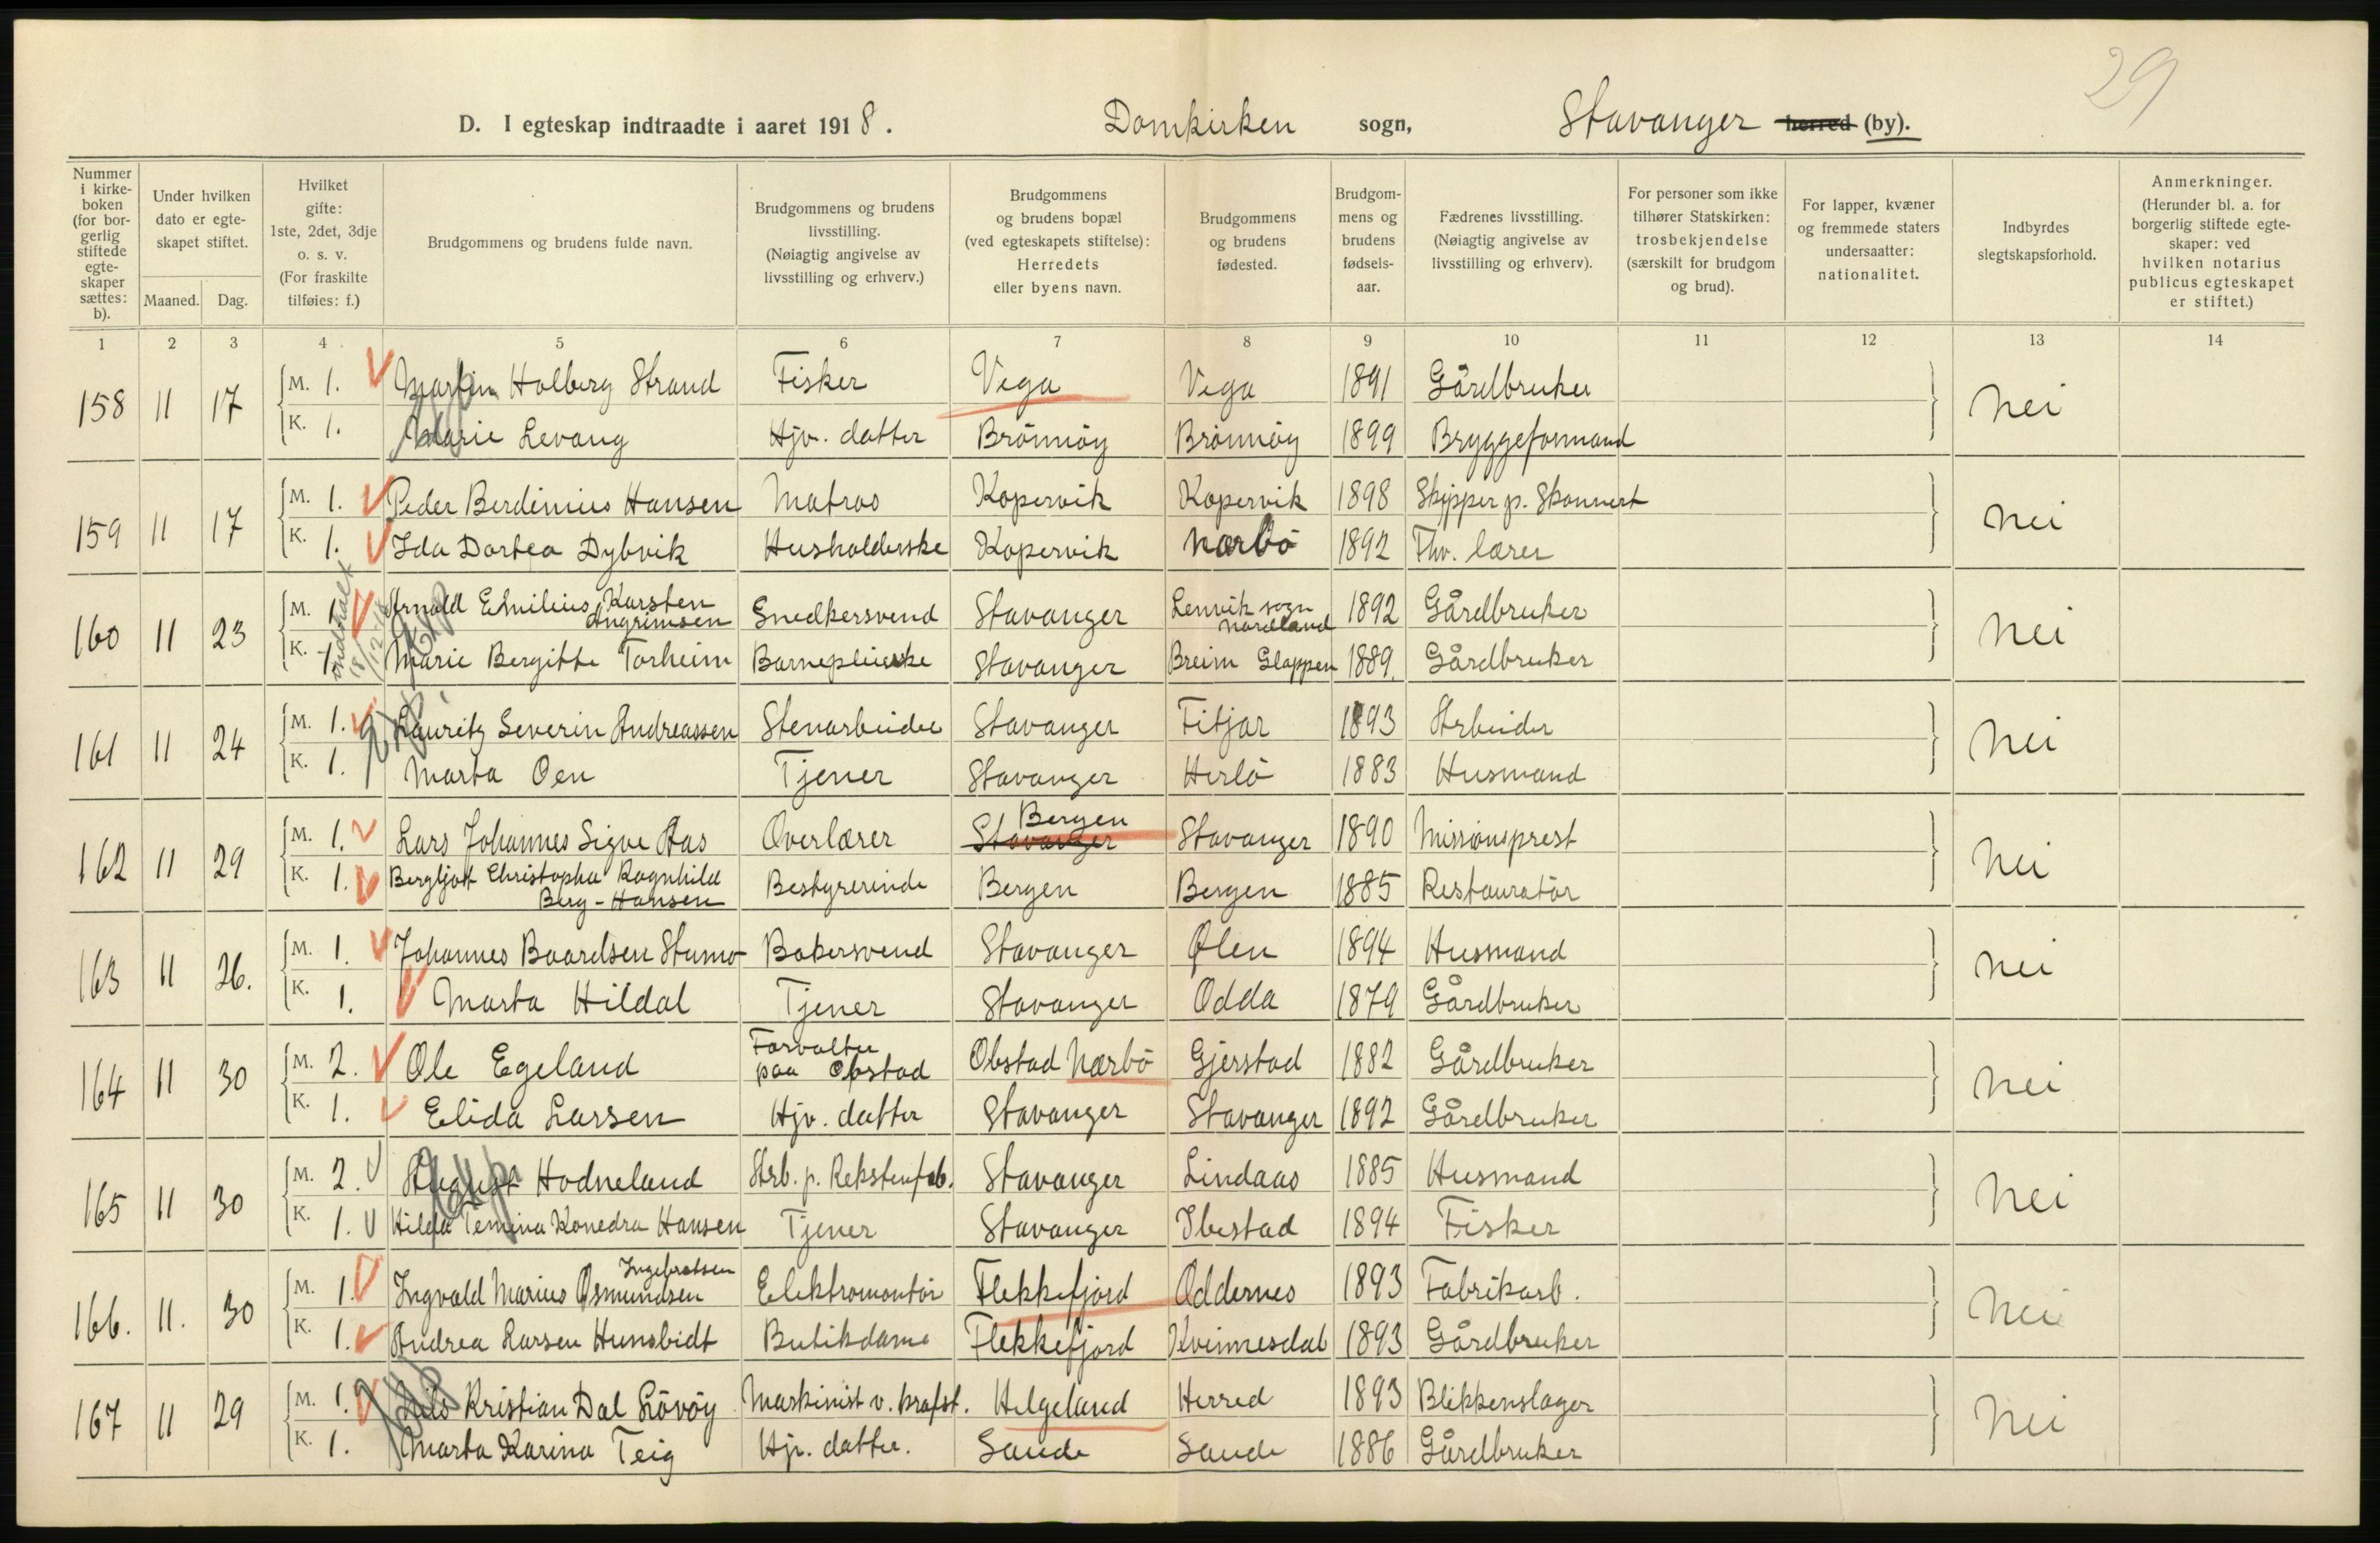 29
D. I egteskap indtraadte i aaret 1918. Domkirken sogn, Stavanger herred (by).
Nummer i kirke-boken (for bor-gerlig stiftede egte-skaper sættes: b).
Under hvilken dato er egte-skapet stiftet.
Maaned. Dag.
Hvilket gifte: 1ste, 2det, 3dje o. s. v. (For fraskilte tilføies: f.)
Brudgommens og brudens fulde navn.
Brudgommens og brudens livsstilling. (Nøiagtig angivelse av livsstilling og erhverv.)
Brudgommens og brudens bopæl (ved egteskapets stiftelse): Herredets eller byens navn.
Brudgommens og brudens fødested.
Brudgom-mens og brudens fødsels-aar.
Fædrenes livsstilling. (Nøiagtig angivelse av livsstilling og erhverv).
For personer som ikke tilhører Statskirken: trosbekjendelse (særskilt for brudgom og brud).
For lapper, kvæner og fremmede staters undersaatter: nationalitet.
Indbyrdes slegtskapsforhold.
Anmerkninger. (Herunder bl. a. for borgerlig stiftede egte-skaper: ved hvilken notarius publicus egteskapet er stiftet.)
1 2 3 4 5 6 7 8 9 10 11 12 13 14
158 11 17 M. 1. Martin Holberg Strand Fisker Vega Vega 1891 Gårdbruker nei
K. 1. Marie Levang Hjv. datter Brönnöy Brönnöy 1899 Bryggeformand
159 11 17 M. 1. Peder Berdinius Hansen Matros Kopervik Kopervik 1898 Skipper p. Skonnert nei
K. 1. Ida Dortea Dybvik Husholderske Kopervik Nærbö 1892 Fhv. lærer
160 11 23 M. 1 Arnold Emilius Karsten Angrimsen Snedkersvend Stavanger Lenvik sogn Nordland 1892 Gårdbruker nei
K. 1 Marie Bergitte Torheim Barnepleierske Stavanger Breim Gloppen 1889. Gårdbruker
161 11 24 M. 1. Lauritz Severin Andreassen Stenarbeider Stavanger Fitjar 1893 Arbeider nei
K. 1. Marta Oen Tjener Stavanger Herlö 1883 Husmand
162 11 29 M. 1. Lars Johannes Sigve Aas Overlærer Stavanger Bergen Stavanger 1890 Missionsprest nei
K. 1. Bergljot Christopha Ragnhild Berg-Hansen Bestyrerinde Bergen Bergen 1885 Restauratör
163 11 26. M. 1. Johannes Baardsen Stumo Bakersvend Stavanger Ølen 1894 Husmand nei
K. 1. Marta Hildal Tjener Stavanger Odda 1879 Gårdbruker
164 11 30 M. 2. Ole Egeland Forvalter paa Obstad Obstad Nærbö Gjerstad 1882 Gårdbruker nei
K. 1. Elida Larsen Hjv. datter Stavanger Stavanger 1892 Gårdbruker
165 11 30 M. 2. August Hodneland Arb. p. Rekstenfab. Stavanger Lindaas 1885 Husmand nei
K. 1. Hilda Temina Konedra Hansen Tjener Stavanger Ibestad 1894 Fisker
166. 11. 30 M. 1. Ingvald Marius Ingebretsen Osmundsen Elektromontör Flekkefjord Oddernes 1893 Fabrikarb. nei
K. 1. Andrea Larsen Hunsbidt Butikdame Flekkefjord Kvinnesdal 1893 Gårdbruker
167 11 29 M. 1. Nils Kristian Dal Lövöy Maskinist v. kraftst. Helgeland Herred 1893 Blikkenslager nei
K. 1. Marta Karina Teig Hjv. datter. Saude Saude 1886 Gårdbruker